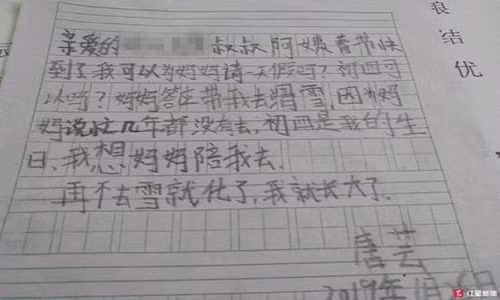 亲爱的 叔叔阿姨春节快
到了我可以为妈妈请一天假吗?初四可
以吗?妈妈答应带我去滑雪,因为妈
妈说忙几年都没有去,初四是我的生
日,我想妈妈陪我去.
再不去雪就化了,我就长大了.
唐芸
2019年1月
良
结
优
红星新闻